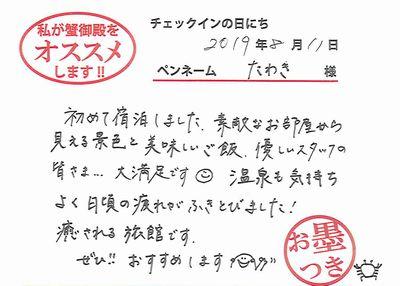 私が蟹御殿を
オススメ
します!!
チェックインの日にち
2019年8月11日
ペンネーム たわき 様
初めて宿泊しました。素敵なお部屋から
見える景色と美味しいご飯、優しいスタッフの
皆さま… 大満足です 温泉も気持ち
よく日頃の疲れがふきとびました!
癒される旅館です。
ぜひ!! おすすめします
お墨
つき